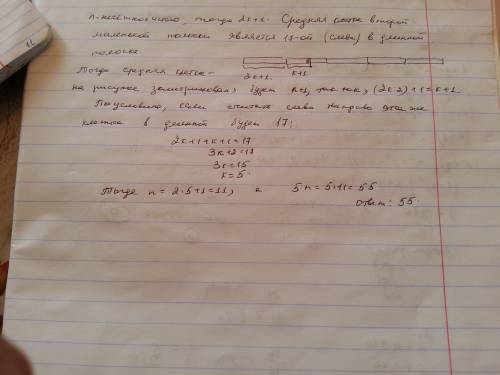 n-нечётное число, тогда 2k+1. Средняя клетка второй
маленькой полоски является 17-ой (слева) в длинной
полоске.
2k+1. k+1
Тогда средняя клетка -
на рисунке заштрихована, будет k+1, так как, (2k:2)+1=k+1.
По условию, если считать слева направо эта же
клетка в длинной будет 17:
2k+1+k+1=17
3k+2=17
3k=15
k=5.
Тогда n=2·5+1=11, а 5n=5·11=55
Ответ: 55.